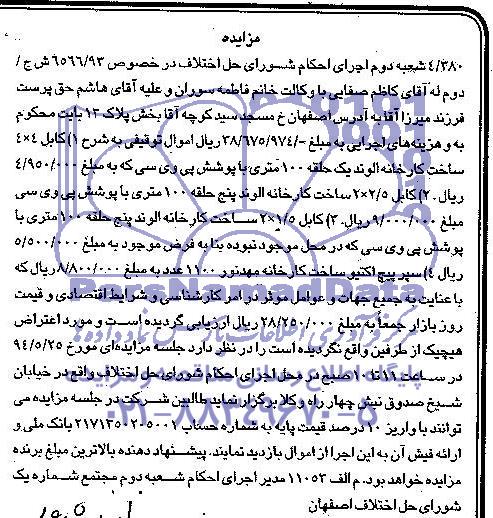 مزایده
۴/۳۸۰ شعبه دوم اجرای احکام شورای حل اختلاف در خصوص ۶۵۶۶/۹۳ ش ج/
دوم له آقای کاظم صفایی با وکالت خانم فاطمه سوران و علیه آقای هاشم حق پرست
فرزند میرزا آقا به آدرس اصفهان خ مسجد سید کوچه آقا بخش پلاک ۱۳ بابت محکوم
به و هزینه های اجرایی به مبلغ -/۳۸/۶۷۵/۹۷۴ ریال اموال توقیفی به شرح ۱) کابل ۴×۴
ساخت کارخانه الوند یک حلقه ۱۰۰ متری با پوشش پی وی سی که به مبلغ ۴/۹۵۰/۰۰۰
ریال. ۲) کابل ۲/۵×۲ ساخت کارخانه الوند پنج حلقه ۱۰۰ متری با پوشش پی وی سی
مبلغ ۹/۰۰۰/۰۰۰ ریال. ۳) کابل ۱/۵×۲ ساخت کارخانه الوند پنج حلقه ۱۰۰ متری با
پوشش پی وی سی که در محل موجود نبوده بنا به فرض موجود به مبلغ ۵/۵۰۰/۰۰۰
ریال ۴) سیر پیچ اکتیو ساخت کارخانه مهدنور ۱۱۰۰ عدد به مبلغ ۸/۸۰۰/۰۰۰ ریال که
با عنایت به جمیع جهات و عوامل موثر در امر کارشناسی و شرایط اقتصادی و قیمت
روز بازار جمعاً به مبلغ ۲۸/۲۵۰/۰۰۰ ریال ارزیابی گردیده است و مورد اعتراض
هیچیک از طرفین واقع نگردیده است را در نظر دارد جلسه مزایده ای مورخ ۹۴/۵/۲۵
در ساعت ۱۱ تا ۱۰ صبح در محل اجرای احکام شورای حل اختلاف واقع در خیابان
شیخ صدوق نبش چهار راه وکلا برگزار نماید طالبین شرکت در جلسه مزایده می
توانند با واریز ۱۰ درصد قیمت پایه به شماره حساب ۲۱۷۱۳۵۰۲۰۵۰۰۱ بانک ملی و
ارائه فیش آن به این اجرا از اموال بازدید نمایند. پیشنهاد دهنده بالاترین مبلغ برنده
مزایده خواهد بود. م الف ۱۱۰۵۳ مدیر اجرای احکام شعبه دوم مجتمع شماره یک
شورای حل اختلاف اصفهان
ParsNamadData
۰۲۱-۸۸۳۴۹۶۷۰-۵